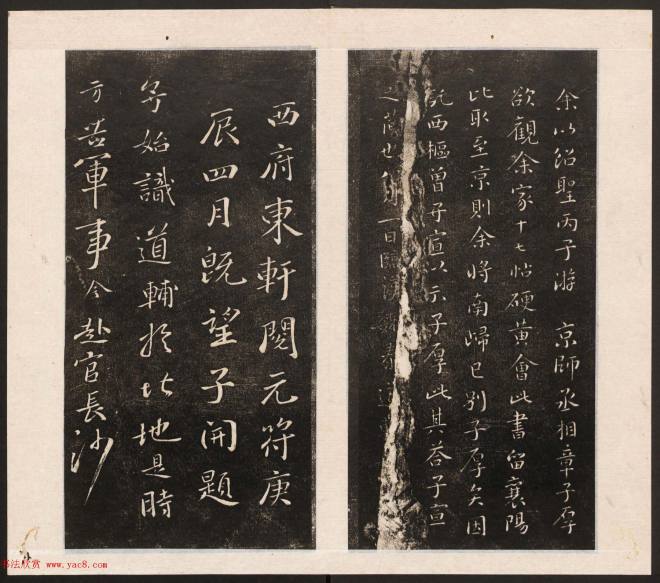 余以紹聖丙子游 京師丞相章子厚
欲觀余家十七帖硬黃會此書留襄陽
比取至京則余將南歸已別子厚矣因
託西樞曾子宣以示子厚此其荅子宣
之 也 日
西府東軒閱元符庚
辰四月旣望子開題
予始識道輔於北地是時
方苦軍事今赴官長沙
书法欣赏 www.yac8.com